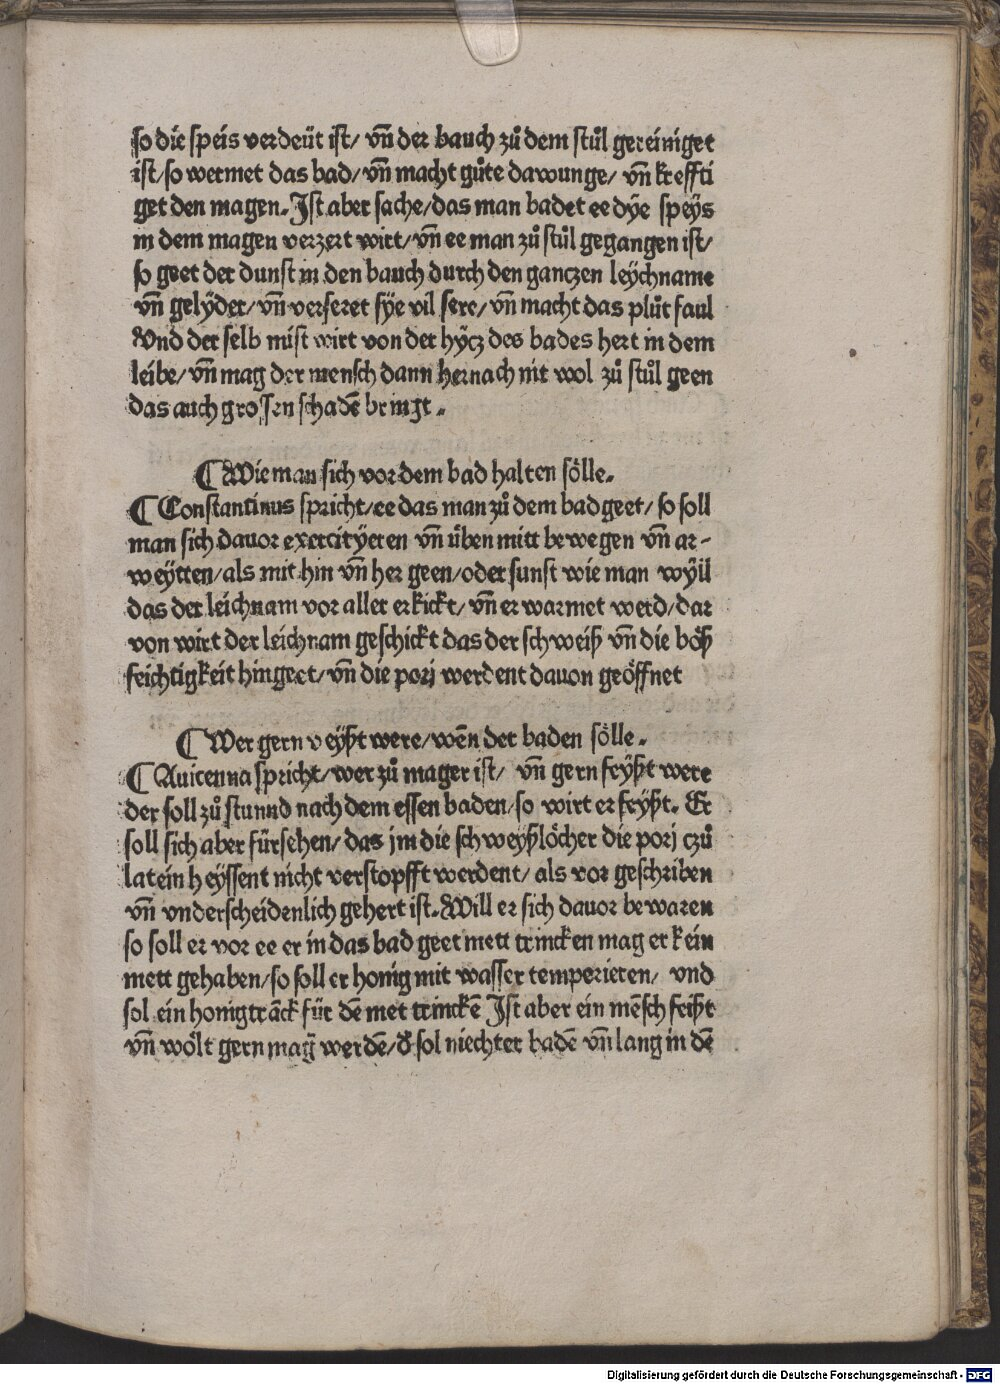 so die speis verdeüt ist/ vn̄ der bauch zů dem stůl gereiniget
ist/so wermet das bad/ vn̄ macht gůte dawunge/ vn̄ kreffti
get den magen. Ist aber sache/das man badet ee dÿe speÿs
in dem magen verzert wirt/ vn̄ ee man zů stůl gegangen ist/
so geet der dunst in den bauch durch den ganczen leÿchname
vn̄ gelÿder/ vn̄ verseret sÿe vil sere/ vn̄ macht das plůt faul
Vnd der selb mist wirt von der hÿcz des bades hert in dem
leibe/ vn̄ mag der mensch dann hernach nit wol zů stůl geen
das auch grossen schadē bringt.
¶ Wie man sich vor dem bad halten sölle.
¶ Constantinus spricht/ee das man zů dem bad geet/ so soll
man sich dauor exercitÿeren vn̄ üben mitt bewegen vn̄ ar-
weÿtten/als mit hin vn̄ her geen/oder sunst wie man wÿil
das der leichnam vor aller erkickt/ vn̄ erwarmet werd/dar
von wirt der leichnam geschickt das der schweiß vn̄ die böß
feichtigkeit hingeet/ vn̄ die pori werdent dauon geöffnet
¶ Wer gern veÿßt were/wēn der baden sölle.
¶ Auicenna spricht/wer zů mager ist/ vn̄ gern feÿßt were
der soll zů stunnd nach dem essen baden/so wirt er feÿßt. Er
soll sich aber fürsehen/das jm die schweÿßlöcher die porj czů
latein heÿssent nicht verstopfft werdent/ als vor geschriben
vn̄ vnderscheidenlich gehert ist. Will er sich dauor bewaren
so soll er vor ee er in das bad geet mett trincken mag er kein
mett gehaben/so soll er honig mit wasser temperieren/ vnd
sol ein honigtrāck für dē met trinckē Ist aber ein mēsch feißt
vn̄ wölt gern mag̃ werdē/ď sol niechter badē vn̄ lang in dē
Digitalisierung gefördert durch die Deutsche Forschungsgemeinschaft - DFG